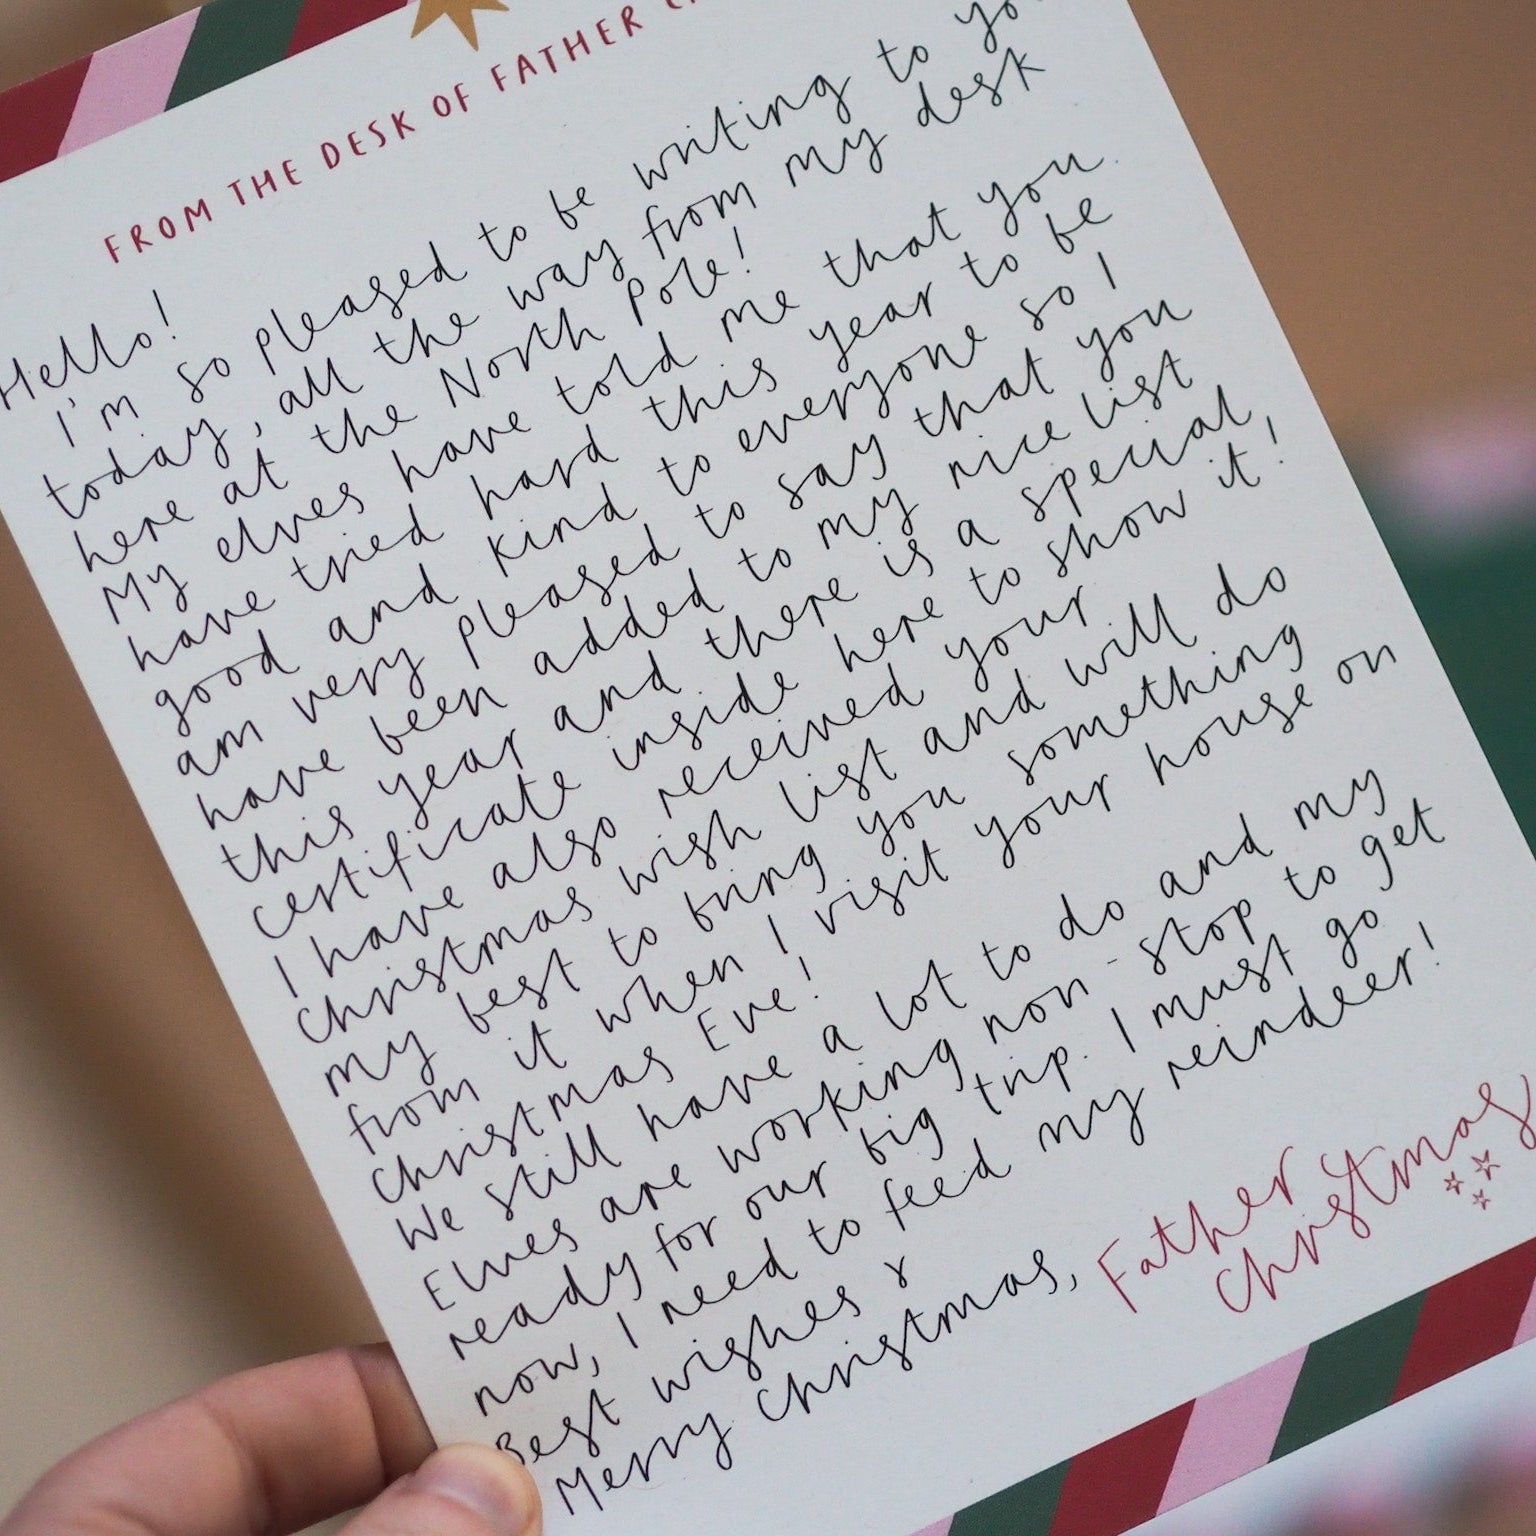 FROM THE DESK OF FATHER
Hello!
I'm so pleased to be writing to
today, all the way from my desk
here at the North Pole!
My elves have told me that you
have tried hard this year to be
good and kind to everyone so I
am very pleased to say that you
have been added to my nice list
this year and there is a special
certificate inside here to show it!
I have also received your
Christmas wish list and will do
my best to bring you something
from it when I visit your house on
Christmas Eve!
We still have a lot to do and my
Elves are working non-stop to get
ready for our big trip. I must go
now, I need to feed my reindeer!
Best wishes &
Merry Christmas, Father
Christmas